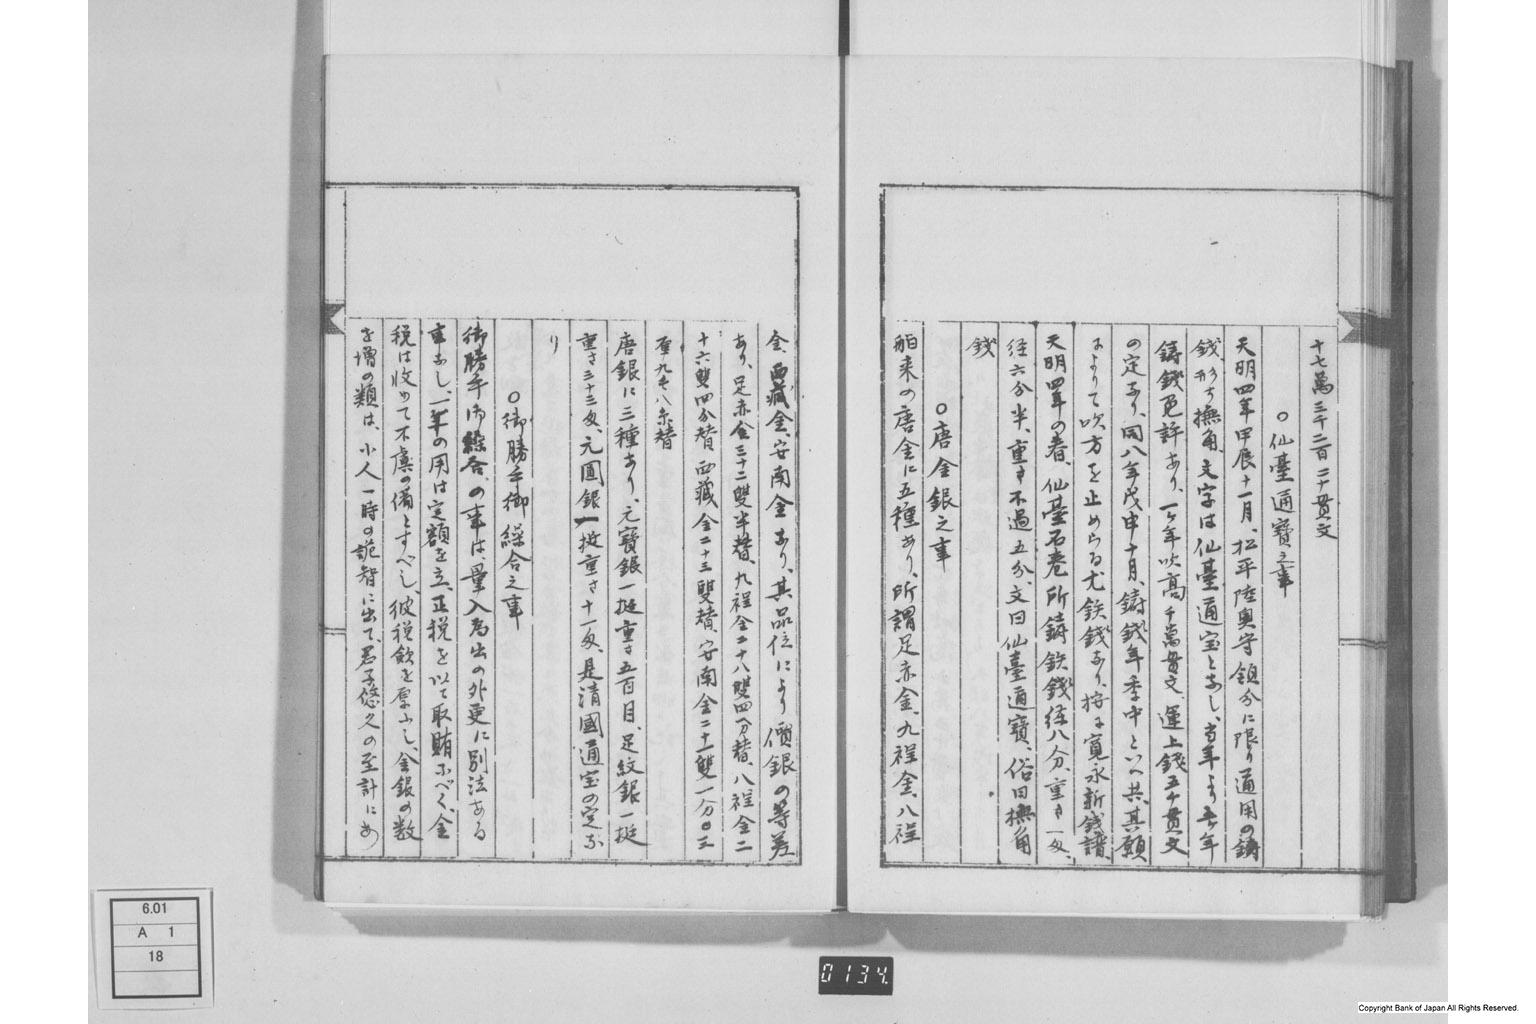 十七萬三千二百二十貫文
〇仙臺通寶之事
天明四年甲辰十一月、松平陸奥守領分に限り通用の鋳
錢、形ち撫角、文字は仙臺通宝となし、当年より五ケ年
鋳錢免許あり、一ケ年吹高千萬貫文、運上錢五千貫文
の定あり、同八年戊申十月、鋳錢年季中といへ共、其願
によりて吹方を止めらる尤鉄錢あり、按に寛永新錢譜
天明四年の春、仙臺石巻所鋳鉄錢径八分、重さ一匁、
径六分半、重さ不過五分、文曰仙臺通寶、俗曰撫角
錢
〇唐金銀之事
舶来の唐金に五種あり、所謂足赤金、九程金、八程
金、西藏金、安南金あり、其品位により價銀の等差
あり、足赤金三十二雙半替、九程金二十八雙四分替、八程金二
十六雙四分替、西藏金二十三雙替、安南金二十一雙一分〇三
九毛八糸替
唐銀に三種あり、元寶銀一挺重さ五百目、足紋銀一挺
重さ三十三匁、元圓銀一枚重さ十一匁、是清國通宝の定な
り
〇御勝手御繰合之事
御勝手御繰合の事は量入為出の外更に別法ある
事なし、一年の用は定額を立、正税を以て取賄ふべく、金
税は收めて不虞の備とすべし、彼税歛を厚ふし、金銀の数
を増の類は、小人一時の詭智に出て、君子悠久の至計にあ
6.01
A 1
18
0134
Copyright Bank of Japan All Rights Reserved.